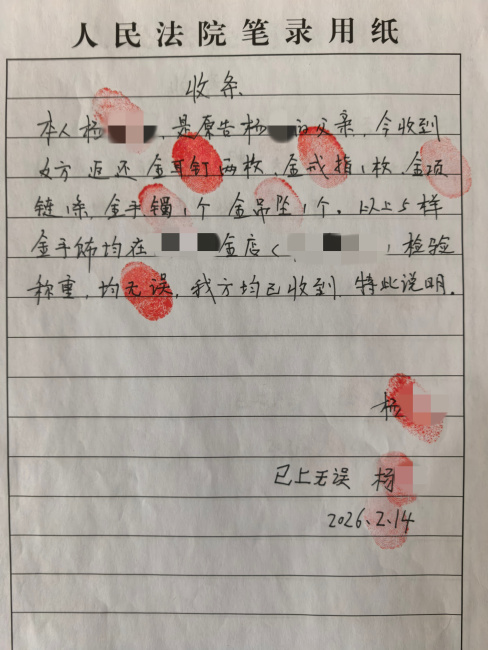 人民法院笔录用纸
收条
本人杨，是原告杨的父亲，今收到
女方返还金耳钉两枚，金戒指1枚，金项
链1条，金手镯1个，金吊坠1个，以上5样
金手饰均在金店（，检验
称重，均无误，我方均已收到，特此说明。
杨
已上无误 杨
2026.2.14